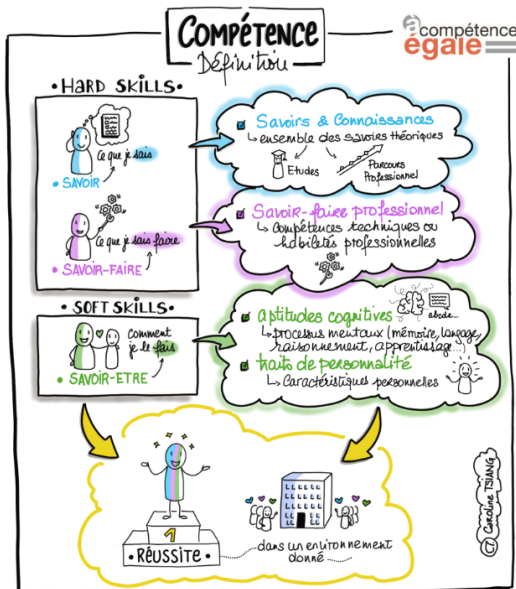 COMPÉTENCE
Définition
à compétence
égale
• HARD SKILLS •
Ce que je sais
• SAVOIR
Ce que je sais faire
• SAVOIR-FAIRE
Savoirs & Connaissances
ensemble des savoirs théoriques
Etudes
Parcours
Professionnel
Savoir-faire professionnel
Compétences techniques ou
habiletés professionnelles
• SOFT SKILLS •
comment
je le fais
• SAVOIR-ETRE
aptitudes cognitives
abcde...
processus mentaux (mémoire, langage,
raisonnement, apprentissage...)
traits de personnalité
Caractéristiques personnelles
1
• RÉUSSITE •
dans un environnement
donné
Caroline TSIANG